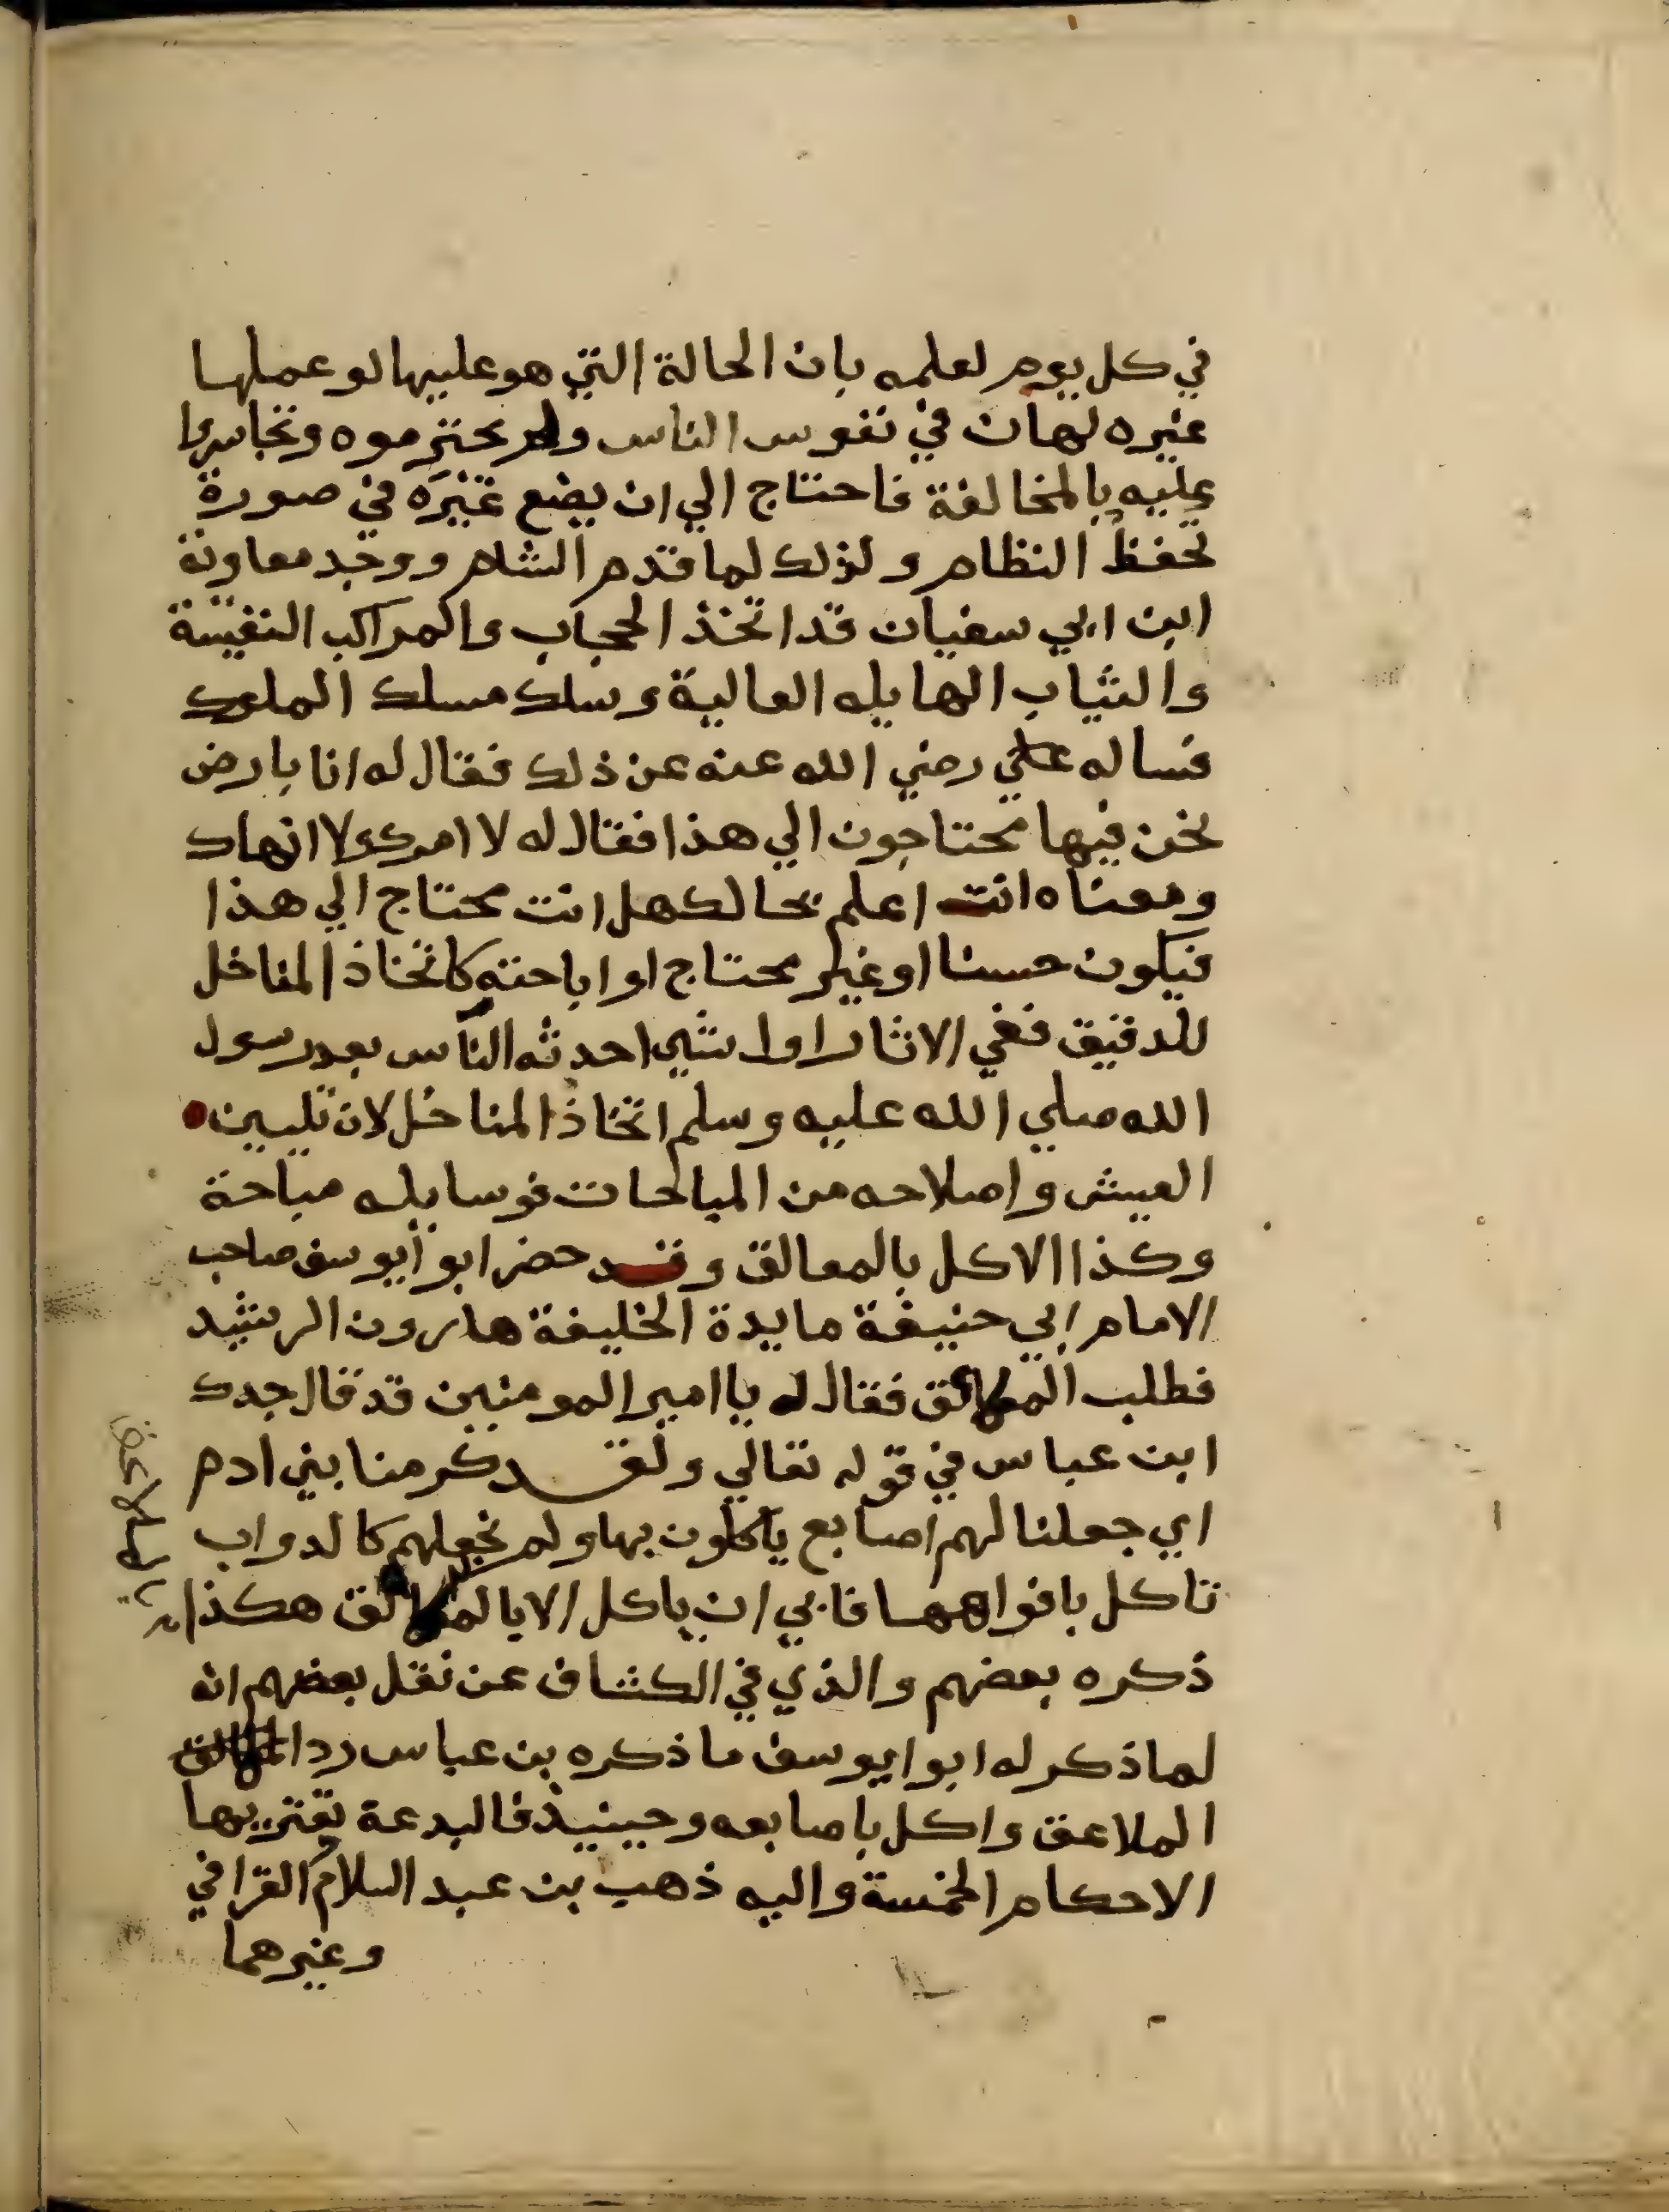 في كل يوم لعلمه بان الحالة التي هو عليها لو عملها
غيره لهان في نفوس الناس ولم يحترموه وتجاسروا
عليه بالمخالفة فاحتاج الي ان يضع غيره في صورة
تحفظ النظام ولذلك لما قدم الشام ووجد معاوية
ابن ابي سفيان قد اتخذ الحجاب والمراكب النفيسة
والثياب الهايله العالية وسلك مسلك الملوك
فساله علي رضي الله عنه عن ذلك فقال له انا بارض
نحن فيها محتاجون الي هذا فقال له لا امرك ولا انهاك
ومعناه انت اعلم بحالك هل انت محتاج الي هذا
فيكون حسنا او غير محتاج او اباحته كاتخاذ المناخل
للدقيق ففي الاثار اول شي احدثه الناس بعد رسول
الله صلي الله عليه وسلم اتخاذ المناخل لان تليين
العيش واصلاحه من المباحات فوسايله مباحة
وكذا الاكل بالمعالق وقد حضر ابو ايوسف صاحب
الامام ابي حنيفة مايدة الخليفة هارون الرشيد
فطلب المعالق فقال له يا امير المومنين قد قال جدك
ابن عباس في قوله تعالي ولقد كرمنا بني ادم
اي جعلنا لهم اصابع ياكلون بها ولم نجعلهم كالدواب
تاكل بافواهها فابي ان ياكل الا بالمعالق هكذا
ذكره بعضهم والذي في الكشاف عن نقل بعضهم انه
لما ذكر له ابو ايوسف ما ذكره بن عباس رد
الملاعق واكل باصابعه وحينيذ فالبدعة تعتريها
الاحكام الخمسة واليه ذهب بن عبد السلام القرافي
وغيرهما